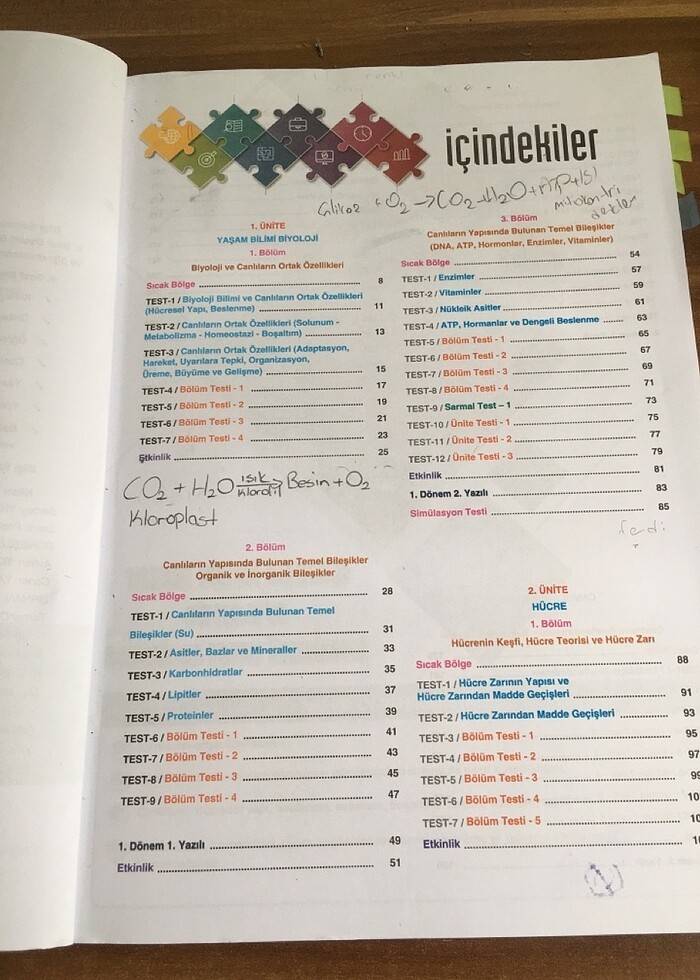 içindekiler
Glikoz + O2 → CO2 + H2O + ATP + ISI
mitokondri
1. ÜNİTE
YAŞAM BİLİMİ BİYOLOJİ
1. Bölüm
Biyoloji ve Canlıların Ortak Özellikleri
Sıcak Bölge 8
TEST-1 / Biyoloji Bilimi ve Canlıların Ortak Özellikleri
(Hücresel Yapı, Beslenme) 11
TEST-2 / Canlıların Ortak Özellikleri (Solunum -
Metabolizma - Homeostazi - Boşaltım) 13
TEST-3 / Canlıların Ortak Özellikleri (Adaptasyon,
Hareket, Uyarılara Tepki, Organizasyon,
Üreme, Büyüme ve Gelişme) 15
TEST-4 / Bölüm Testi - 1 17
TEST-5 / Bölüm Testi - 2 19
TEST-6 / Bölüm Testi - 3 21
TEST-7 / Bölüm Testi - 4 23
Etkinlik 25
CO2 + H2O ışık Klorofil → Besin + O2
Kloroplast
2. Bölüm
Canlıların Yapısında Bulunan Temel Bileşikler
Organik ve İnorganik Bileşikler
Sıcak Bölge 28
TEST-1 / Canlıların Yapısında Bulunan Temel
Bileşikler (Su) 31
TEST-2 / Asitler, Bazlar ve Mineraller 33
TEST-3 / Karbonhidratlar 35
TEST-4 / Lipitler 37
TEST-5 / Proteinler 39
TEST-6 / Bölüm Testi - 1 41
TEST-7 / Bölüm Testi - 2 43
TEST-8 / Bölüm Testi - 3 45
TEST-9 / Bölüm Testi - 4 47
1. Dönem 1. Yazılı 49
Etkinlik 51
3. Bölüm
Canlıların Yapısında Bulunan Temel Bileşikler
(DNA, ATP, Hormonlar, Enzimler, Vitaminler)
Sıcak Bölge 54
TEST-1 / Enzimler 57
TEST-2 / Vitaminler 59
TEST-3 / Nükleik Asitler 61
TEST-4 / ATP, Hormanlar ve Dengeli Beslenme 63
TEST-5 / Bölüm Testi - 1 65
TEST-6 / Bölüm Testi - 2 67
TEST-7 / Bölüm Testi - 3 69
TEST-8 / Bölüm Testi - 4 71
TEST-9 / Sarmal Test – 1 73
TEST-10 / Ünite Testi - 1 75
TEST-11 / Ünite Testi - 2 77
TEST-12 / Ünite Testi - 3 79
Etkinlik 81
1. Dönem 2. Yazılı 83
Simülasyon Testi 85
2. ÜNİTE
HÜCRE
1. Bölüm
Hücrenin Keşfi, Hücre Teorisi ve Hücre Zarı
Sıcak Bölge 88
TEST-1 / Hücre Zarının Yapısı ve
Hücre Zarından Madde Geçişleri 91
TEST-2 / Hücre Zarından Madde Geçişleri 93
TEST-3 / Bölüm Testi - 1 95
TEST-4 / Bölüm Testi - 2 97
TEST-5 / Bölüm Testi - 3
TEST-6 / Bölüm Testi - 4
TEST-7 / Bölüm Testi - 5
Etkinlik